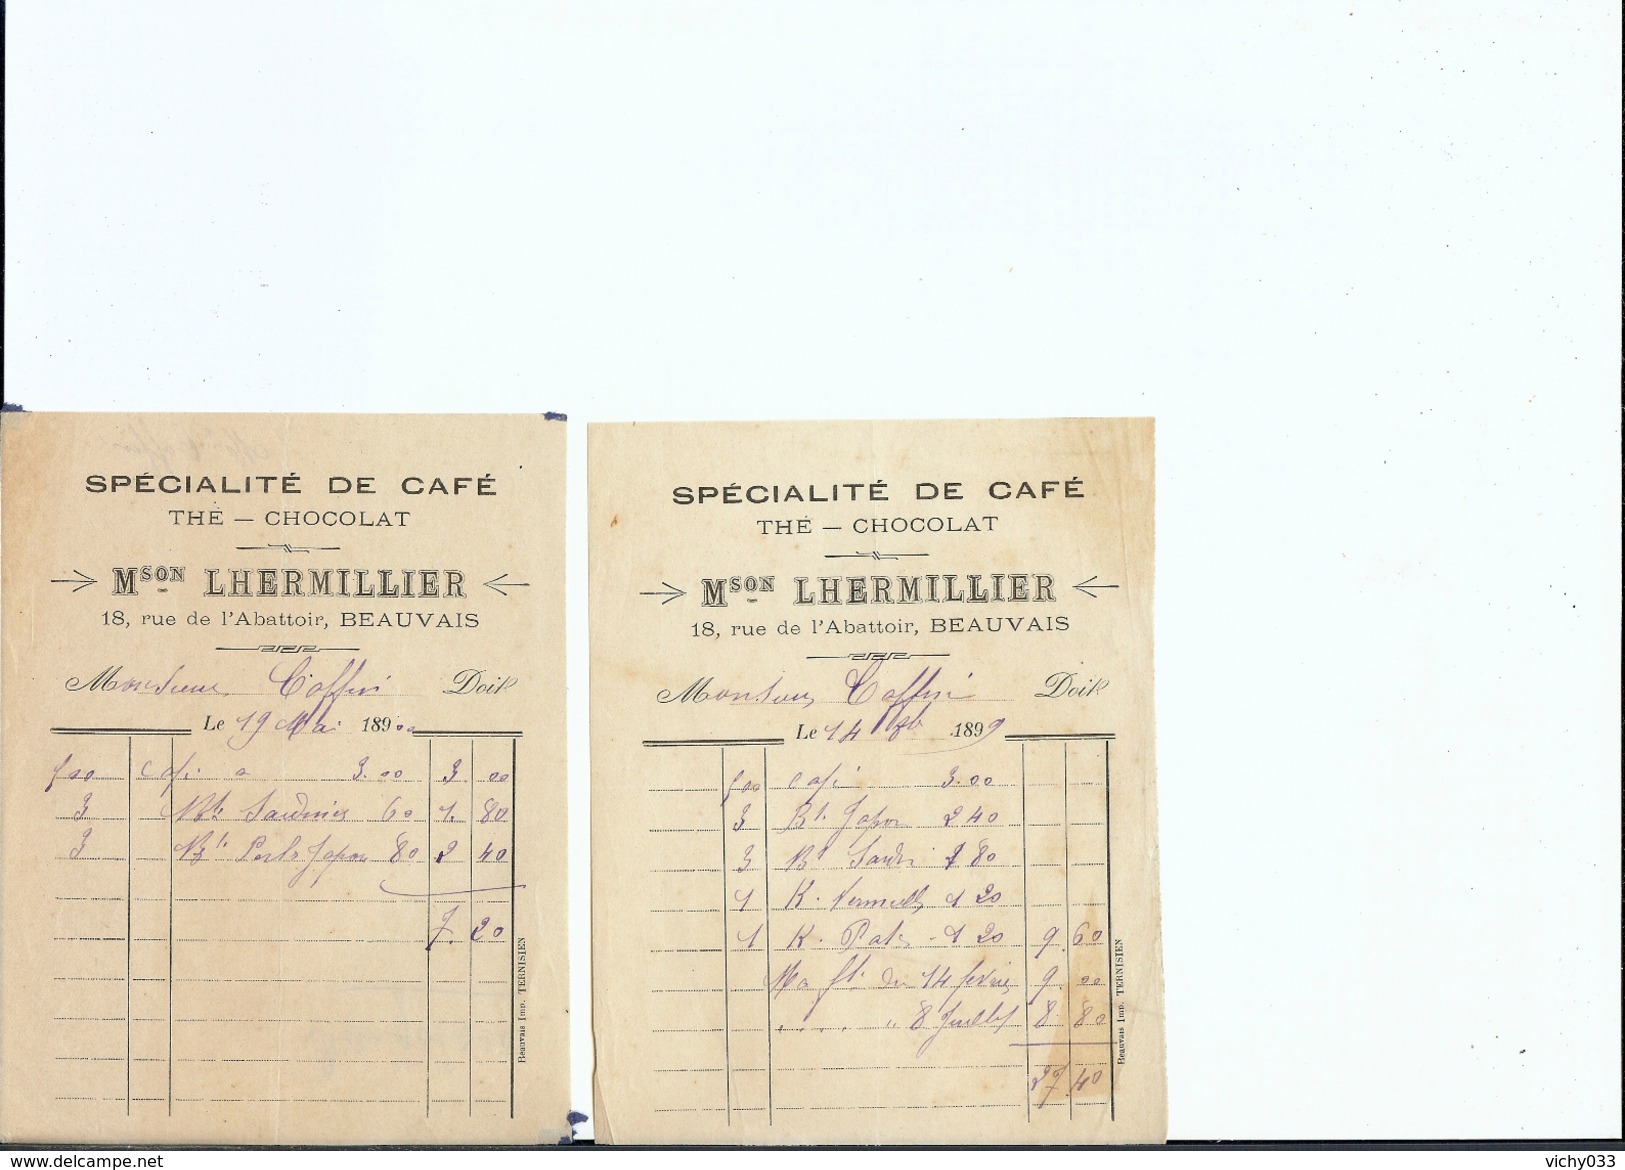 SPÉCIALITÉ DE CAFÉ
THÉ — CHOCOLAT
Mson LHERMILLIER
18, rue de l'Abattoir, BEAUVAIS
Monsieur Coffin Doit
Le 19 Mai 18900
500 Café a 3.00 3. 00
3 Btes Sardines 60 1. 80
3 Btes Perles Japon 80 2 40
7. 20
Beauvais Imp. TERNISIEN
SPÉCIALITÉ DE CAFÉ
THÉ — CHOCOLAT
Mson LHERMILLIER
18, rue de l'Abattoir, BEAUVAIS
Monsieur Coffin Doit
Le 14 1899
500 Café 3.00
3 Bt. Japon 2 40
3 Bt Sardi 1 80
1 K. Vermicelle 1 20
1 K. Pates 1 20 9. 60
Ma ft. du 14 février 9. 00
. . . . " 8 Juillet 8 80
27. 40
Beauvais Imp. TERNISIEN
delcampe.net
vichy033